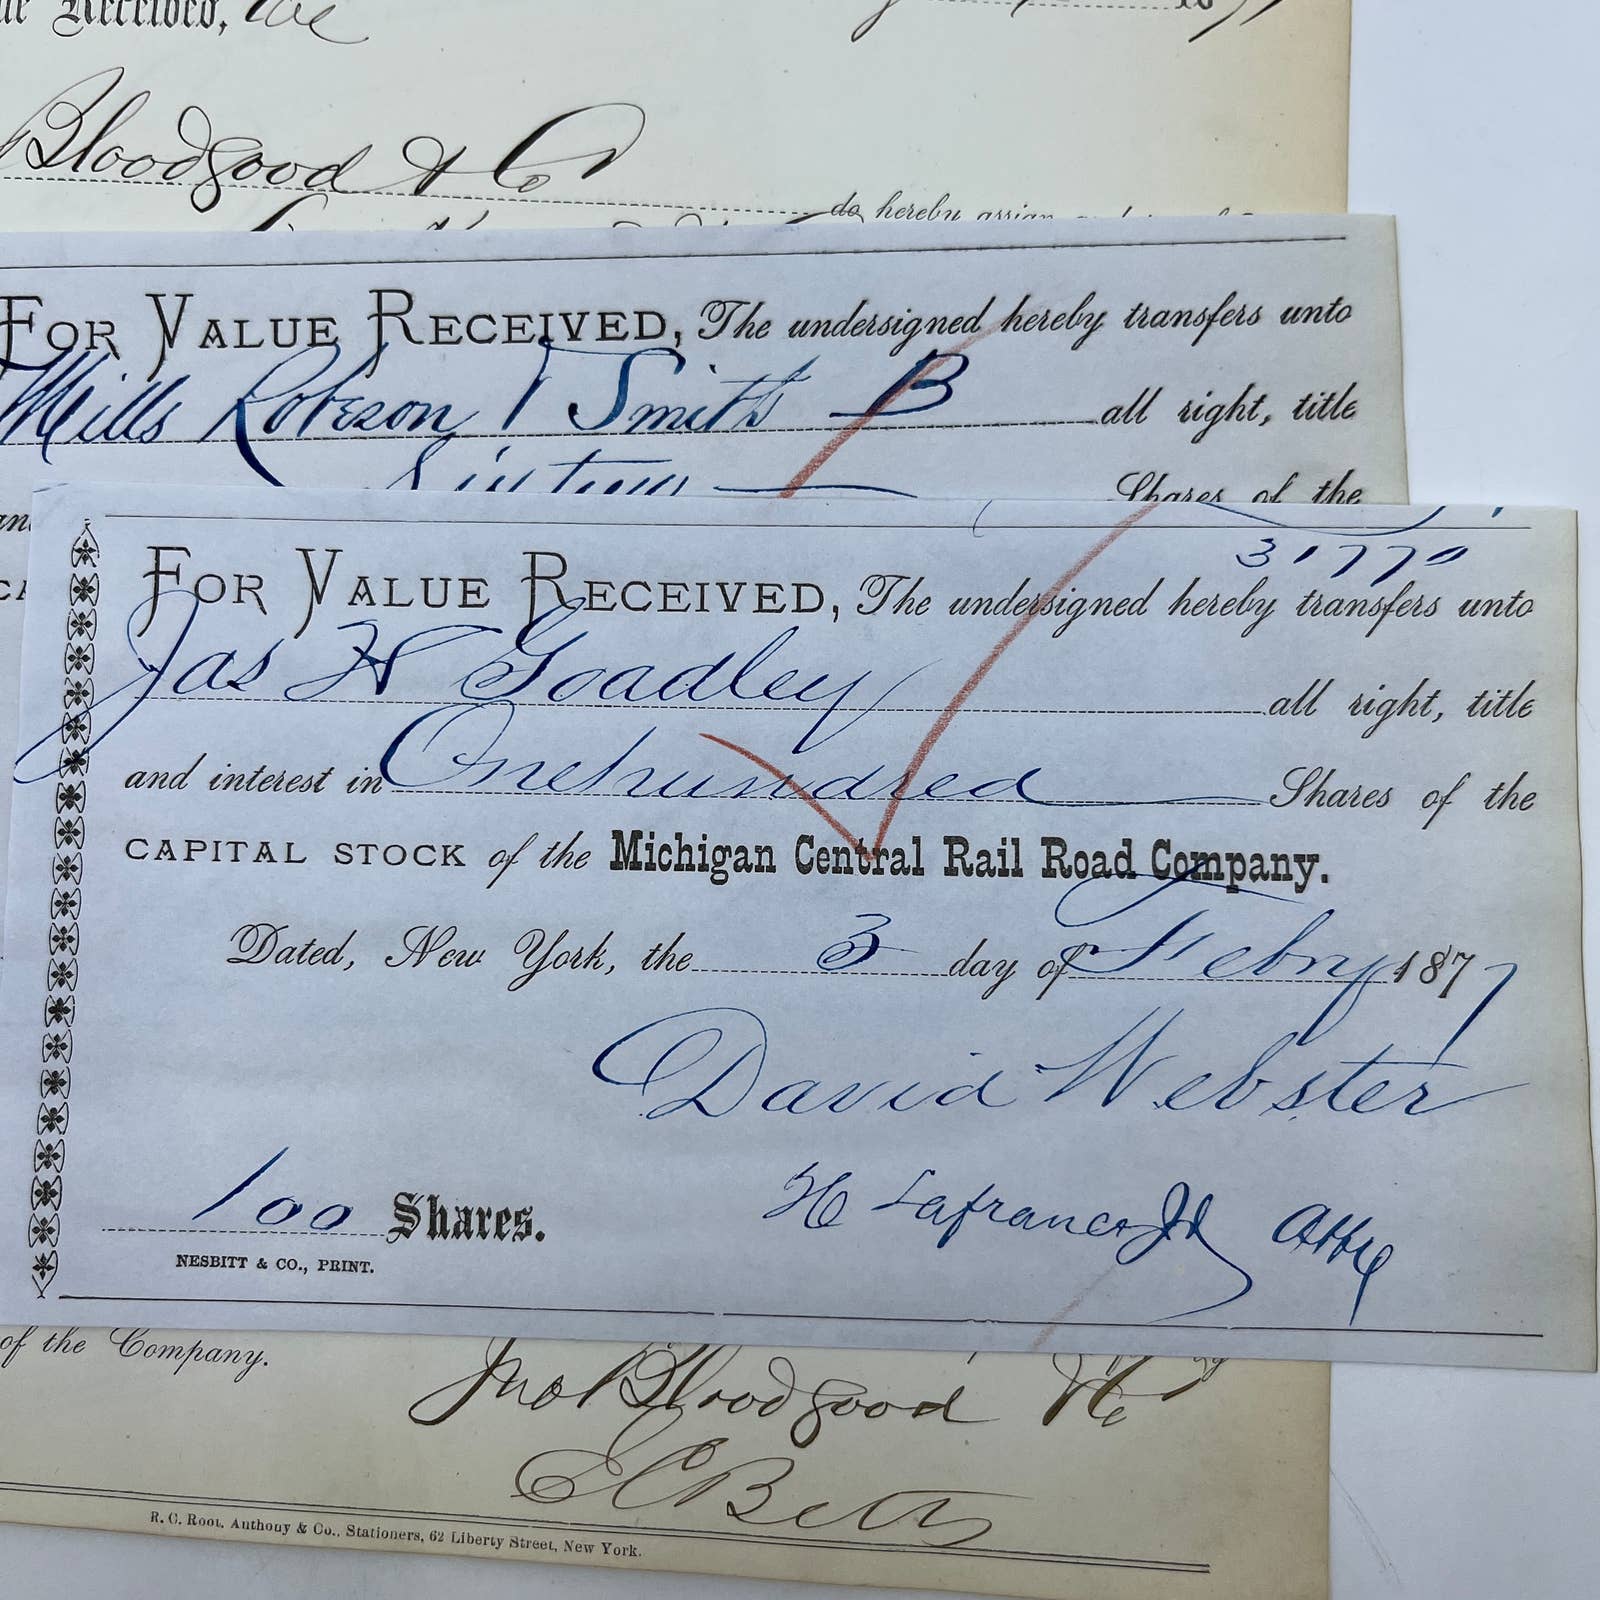 Received, We
Bloodgood & Co
do hereby assign
FOR VALUE RECEIVED, The undersigned hereby transfers unto
Mills Robeson & Smith B all right, title
Sixteen Shares of the
31770
FOR VALUE RECEIVED, The undersigned hereby transfers unto
Jas H Goadley all right, title
and interest in Onehundred Shares of the
CAPITAL STOCK of the Michigan Central Rail Road Company.
Dated, New York, the 3 day of Febry 1877
David Webster
100 Shares. H Lafrance Jr Atty
NESBITT & CO., PRINT.
of the Company.
Jno Bloodgood & Co
E C Betts
R. C. Root, Anthony & Co., Stationers, 62 Liberty Street, New York.